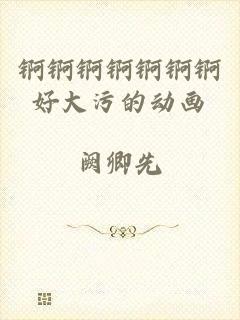 锕锕锕锕锕锕锕
好大污的动画
阙卿先